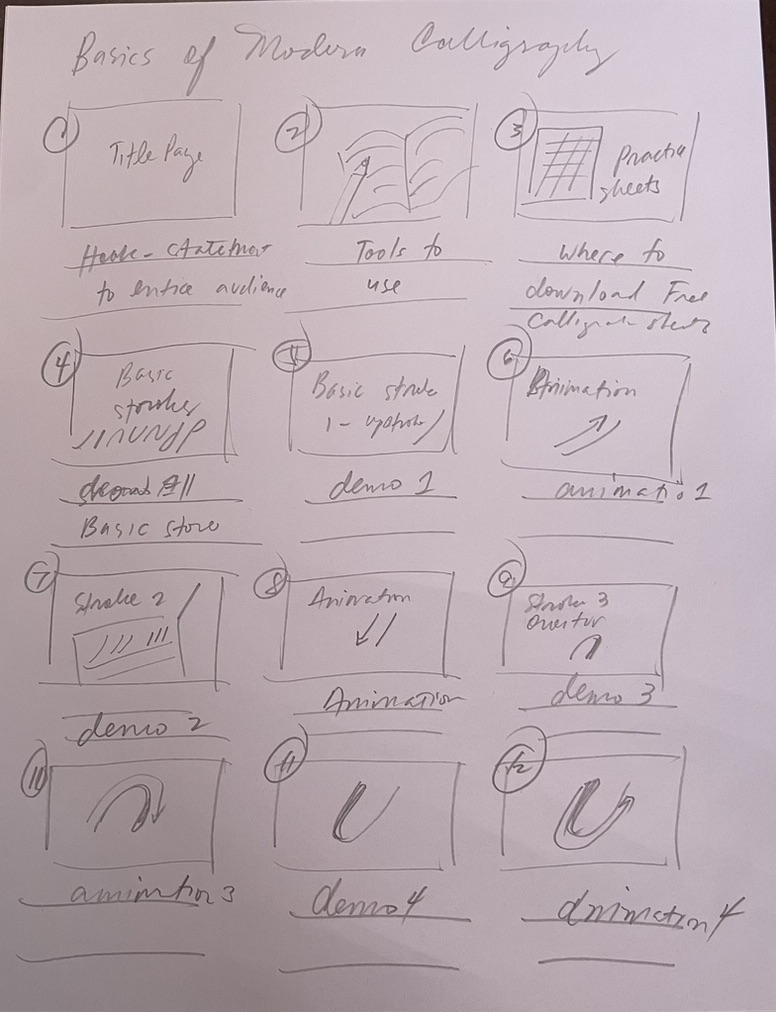 Basics of Modern Calligraphy
1
Title Page
Hook - statement
to entice audience
2
Tools to
use
3
Practice
sheets
Where to
download Free
4
Basic
strokes
All
Basic
5
Basic stroke
1 -
demo 1
6
Animation
7
Stroke 2
demo 2
8
Animation
Animation
9
Stroke 3
demo 3
10
3
11
demo 4
12
4